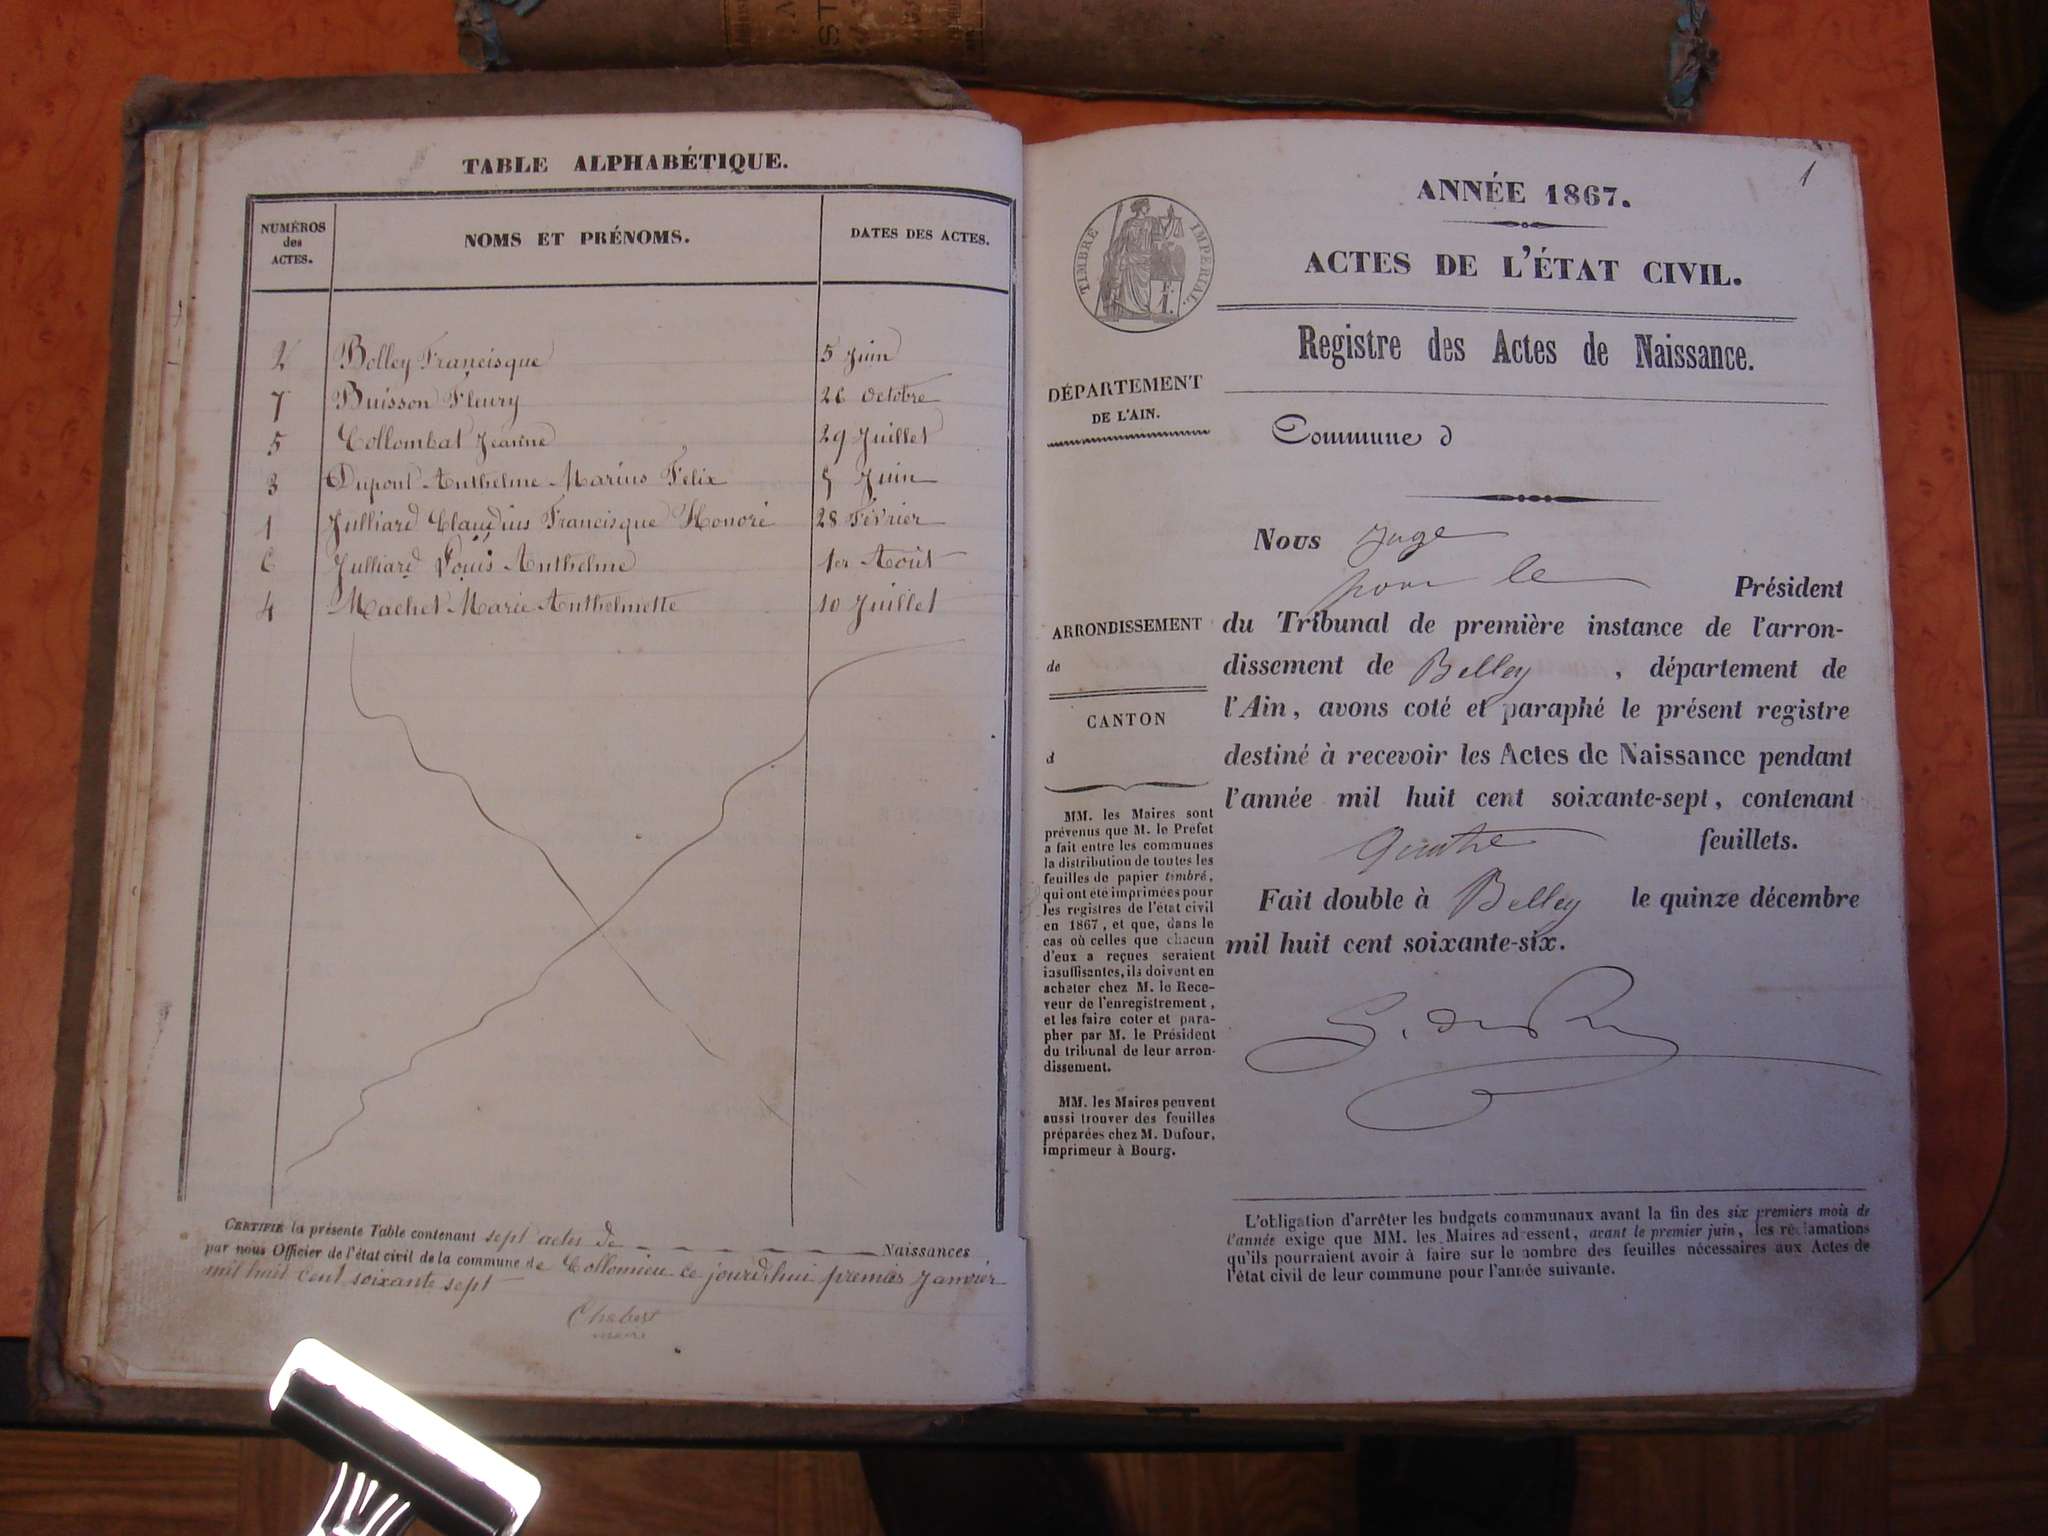 TABLE ALPHABÉTIQUE.
NUMÉROS
des
ACTES.
NOMS ET PRÉNOMS.
DATES DES ACTES.
2 Bolley Francisque 5 Juin
7 Buisson Fleury 26 Octobre
5 Collombat Jeanne 29 Juillet
3 Dupont Anthelme Marius Felix 5 Juin
1 Julliard Claudius Francisque Honoré 28 Février
6 Julliard Louis Anthelme 1er Août
4 Machet Marie Anthelmette 10 Juillet
CERTIFIÉ la présente Table contenant sept actes de Naissances
par nous Officier de l'état civil de la commune de Collomieu ce jourd'hui premier Janvier
mil huit cent soixante sept
Chabert
maire
1
ANNÉE 1867.
ACTES DE L'ÉTAT CIVIL.
TIMBRE IMPÉRIAL.
Registre des Actes de Naissance.
DÉPARTEMENT
DE L'AIN.
Commune d
Nous Juge
pour le Président
du Tribunal de première instance de l'arron-
dissement de Belley, département de
l'Ain, avons coté et paraphé le présent registre
destiné à recevoir les Actes de Naissance pendant
l'année mil huit cent soixante-sept, contenant
Quatre feuillets.
Fait double à Belley le quinze décembre
mil huit cent soixante-six.
ARRONDISSEMENT
de
CANTON
d
MM. les Maires sont
prévenus que M. le Préfet
a fait entre les communes
la distribution de toutes les
feuilles de papier timbré,
qui ont été imprimées pour
les registres de l'état civil
en 1867, et que, dans le
cas où celles que chacun
d'eux a reçues seraient
insuffisantes, ils doivent en
acheter chez M. le Rece-
veur de l'enregistrement,
et les faire coter et para-
pher par M. le Président
du tribunal de leur arron-
dissement.
MM. les Maires peuvent
aussi trouver des feuilles
préparées chez M. Dufour,
imprimeur à Bourg.
L'obligation d'arrêter les budgets communaux avant la fin des six premiers mois de
l'année exige que MM. les Maires adressent, avant le premier juin, les réclamations
qu'ils pourraient avoir à faire sur le nombre des feuilles nécessaires aux Actes de
l'état civil de leur commune pour l'année suivante.